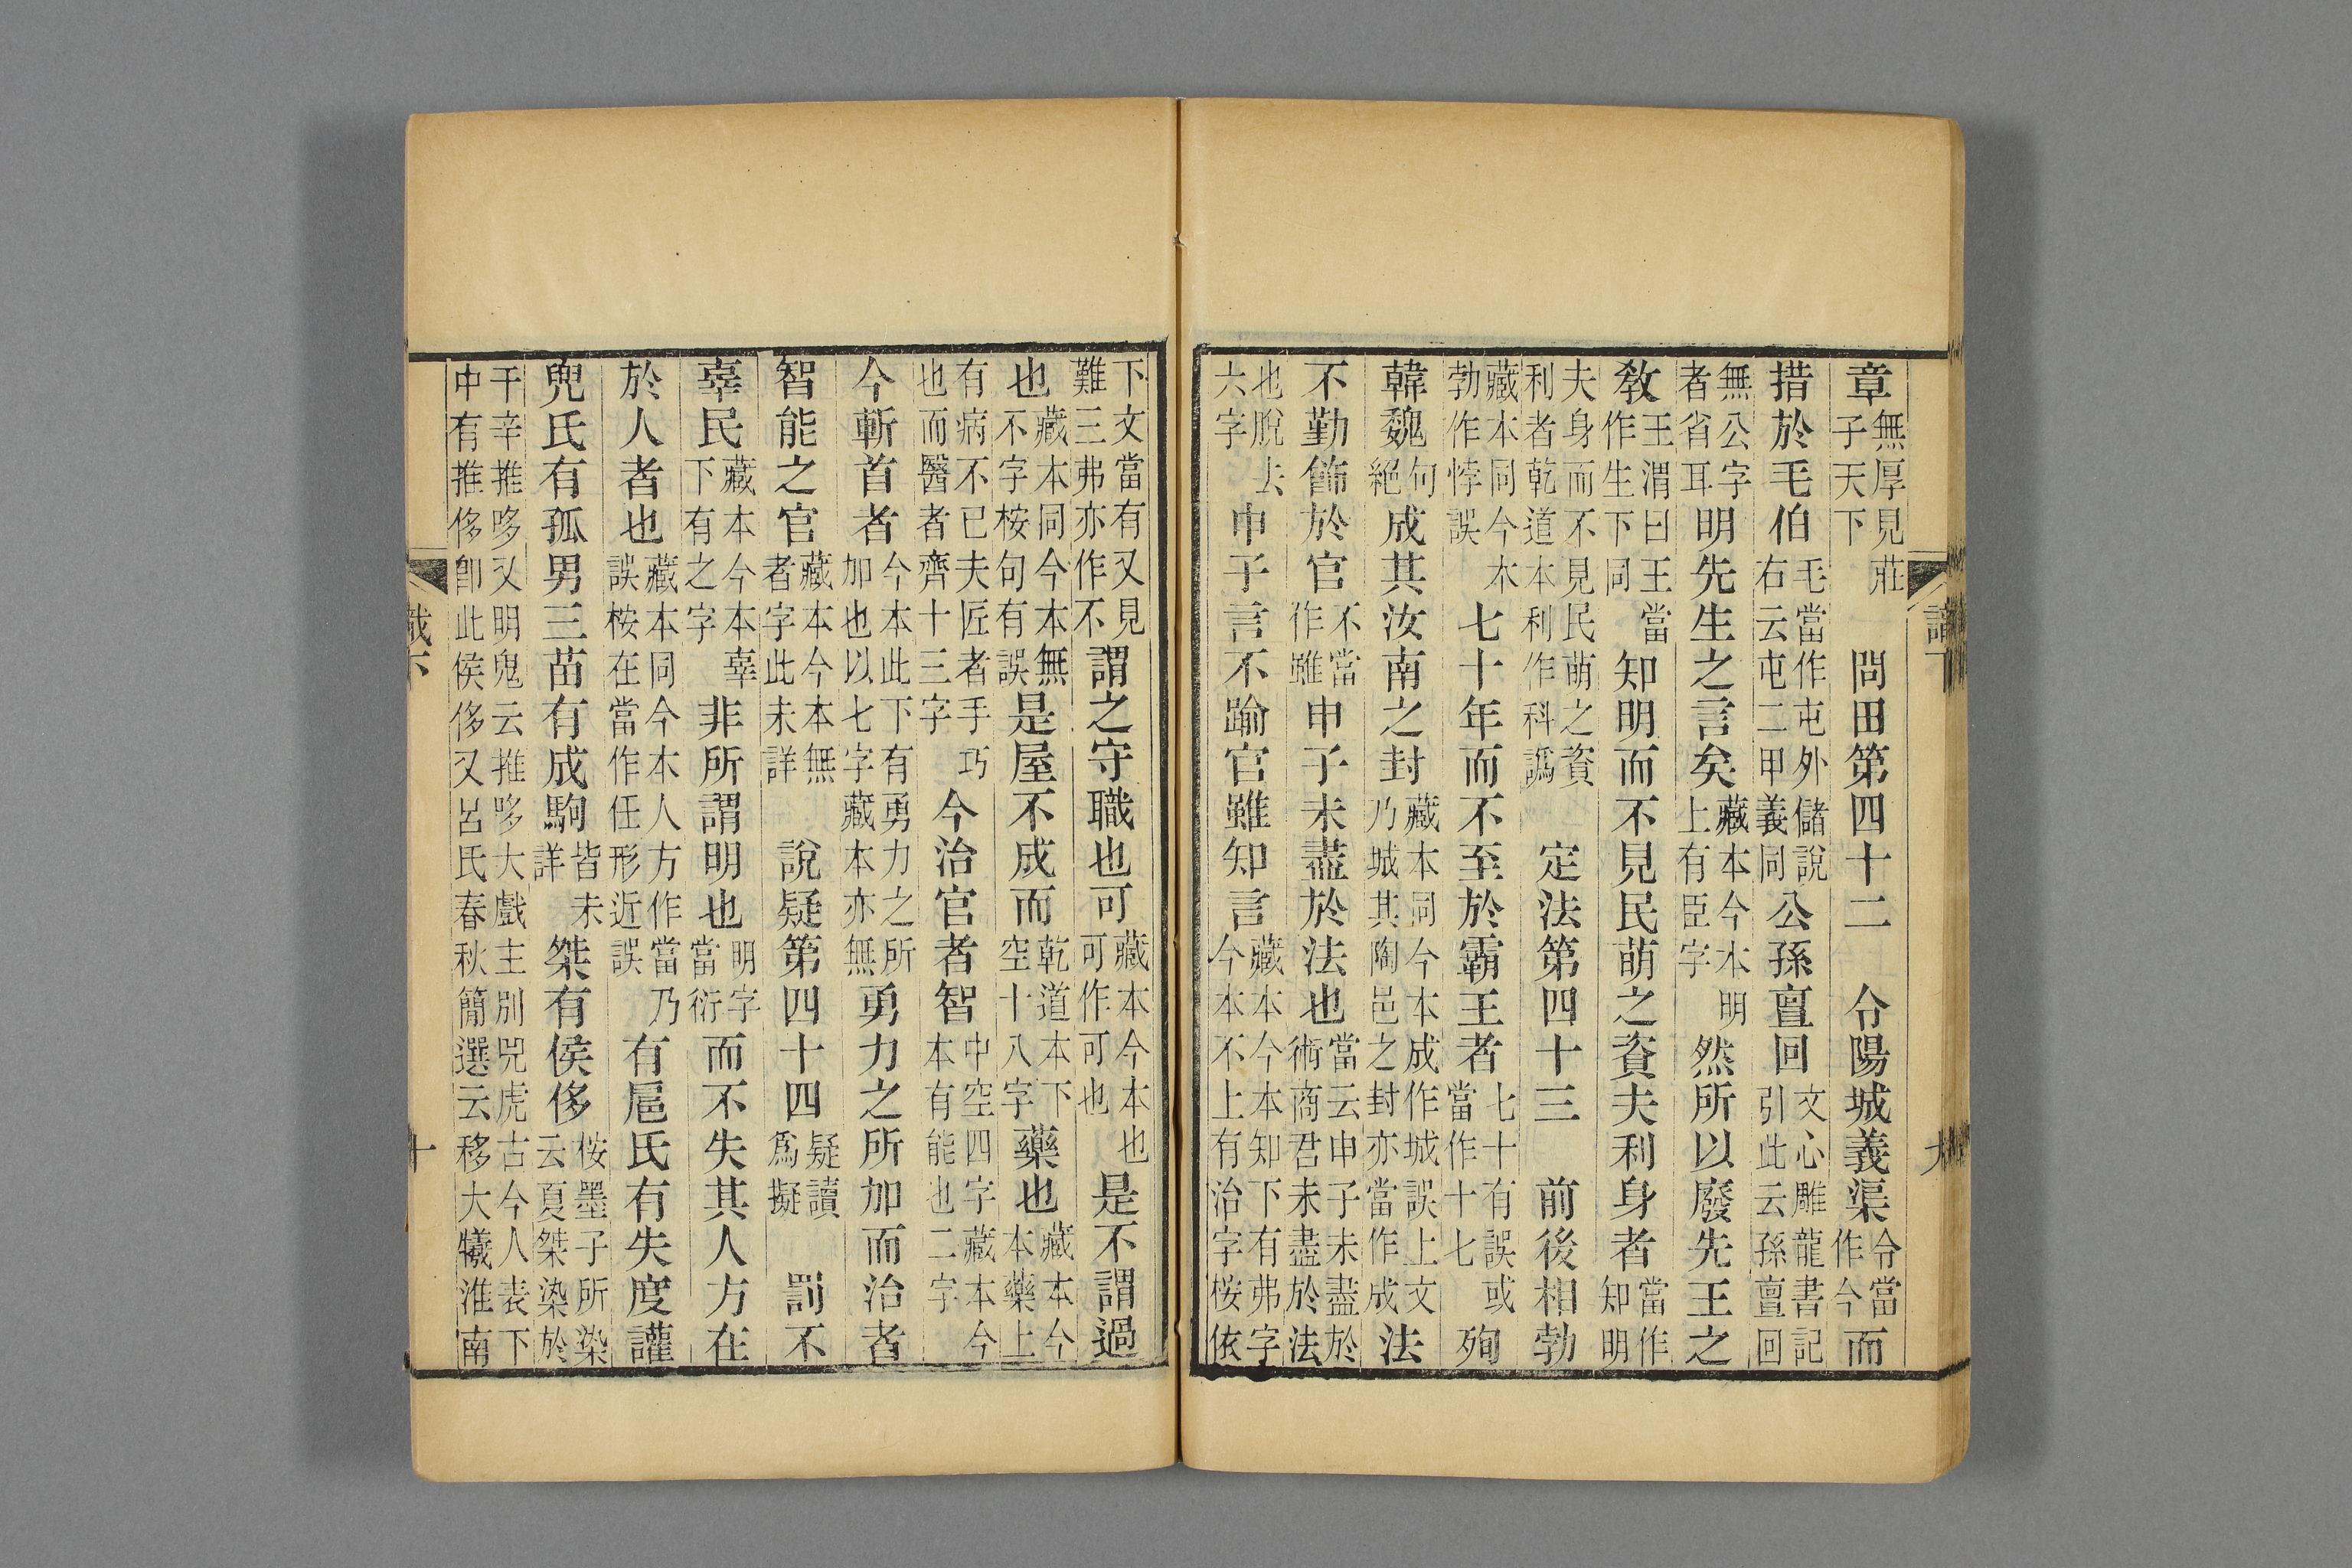 章無厚見莊子天下　問田第四十二　令陽城義渠令當作今而
措於毛伯毛當作屯外儲說右云屯二甲義同公孫亶回文心雕龍書記引此云孫亶回
無公字者省耳明先生之言矣藏本今本明上有臣字然所以廢先王之
教王渭曰王當作生下同知明而不見民萌之資夫利身者當作知明
夫身而不見民萌之資利者乾道本利作科譌　定法第四十三　前後相勃
藏本同今本勃作悖誤七十年而不至於霸王者七十有誤或當作十七殉
韓魏句絕成其汝南之封藏本同今本成作城誤上文乃城其陶邑之封亦當作成法
不勤飾於官不當作雖申子未盡於法也當云申子未盡於術商君未盡於法
也脫去六字申子言不踰官雖知言藏本今本知下有弗字今本不上有治字桉依
下文當有又見難三弗亦作不謂之守職也可藏本今本也可作可也是不謂過
也藏本同今本無不字桉句有誤是屋不成而乾道本下空十八字藥也藏本今本藥上
有病不已夫匠者手巧也而醫者齊十三字今治官者智中空四字藏本今本有能也二字
今斬首者今本此下有勇力之所加也以七字藏本亦無勇力之所加而治者
智能之官藏本今本無者字此未詳　說疑第四十四疑讀爲擬　罰不
辜民藏本今本辜下有之字非所謂明也明字當衍而不失其人方在
於人者也藏本同今本人方作當乃誤桉在當作任形近誤有扈氏有失度讙
兜氏有孤男三苗有成駒皆未詳桀有侯侈桉墨子所染云夏桀染於
干辛推哆又明鬼云推哆大戲主別兕虎古今人表下中有推侈卽此侯侈又呂氏春秋簡選云移大犧淮南
識下
十